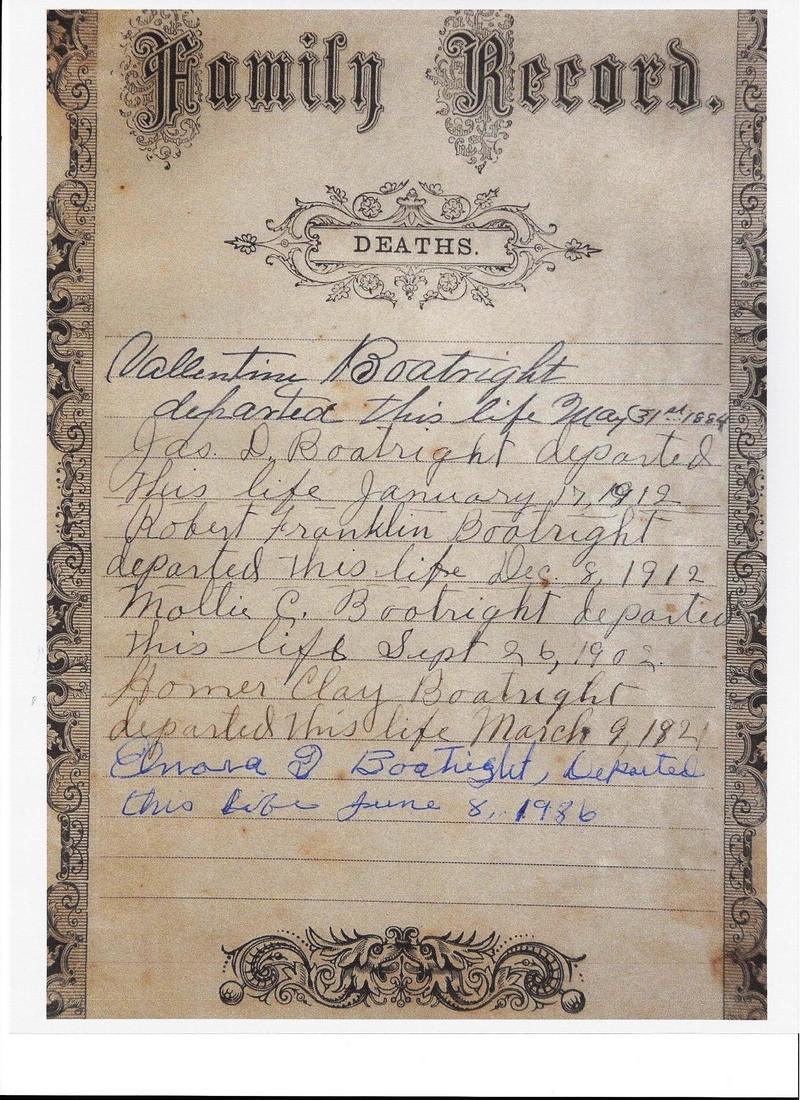 Family Record.
DEATHS.
Vallentine Boatright
departed this life May 31st 1884
Jas. D. Boatright departed
this life January 17, 1912
Robert Franklin Boatright
departed this life Dec. 8, 1912
Mollie C. Boatright departed
this life Sept 26, 1902.
Homer Clay Boatright
departed this life March 9, 1821
Elnora Boatright, Departed
this life June 8, 1986